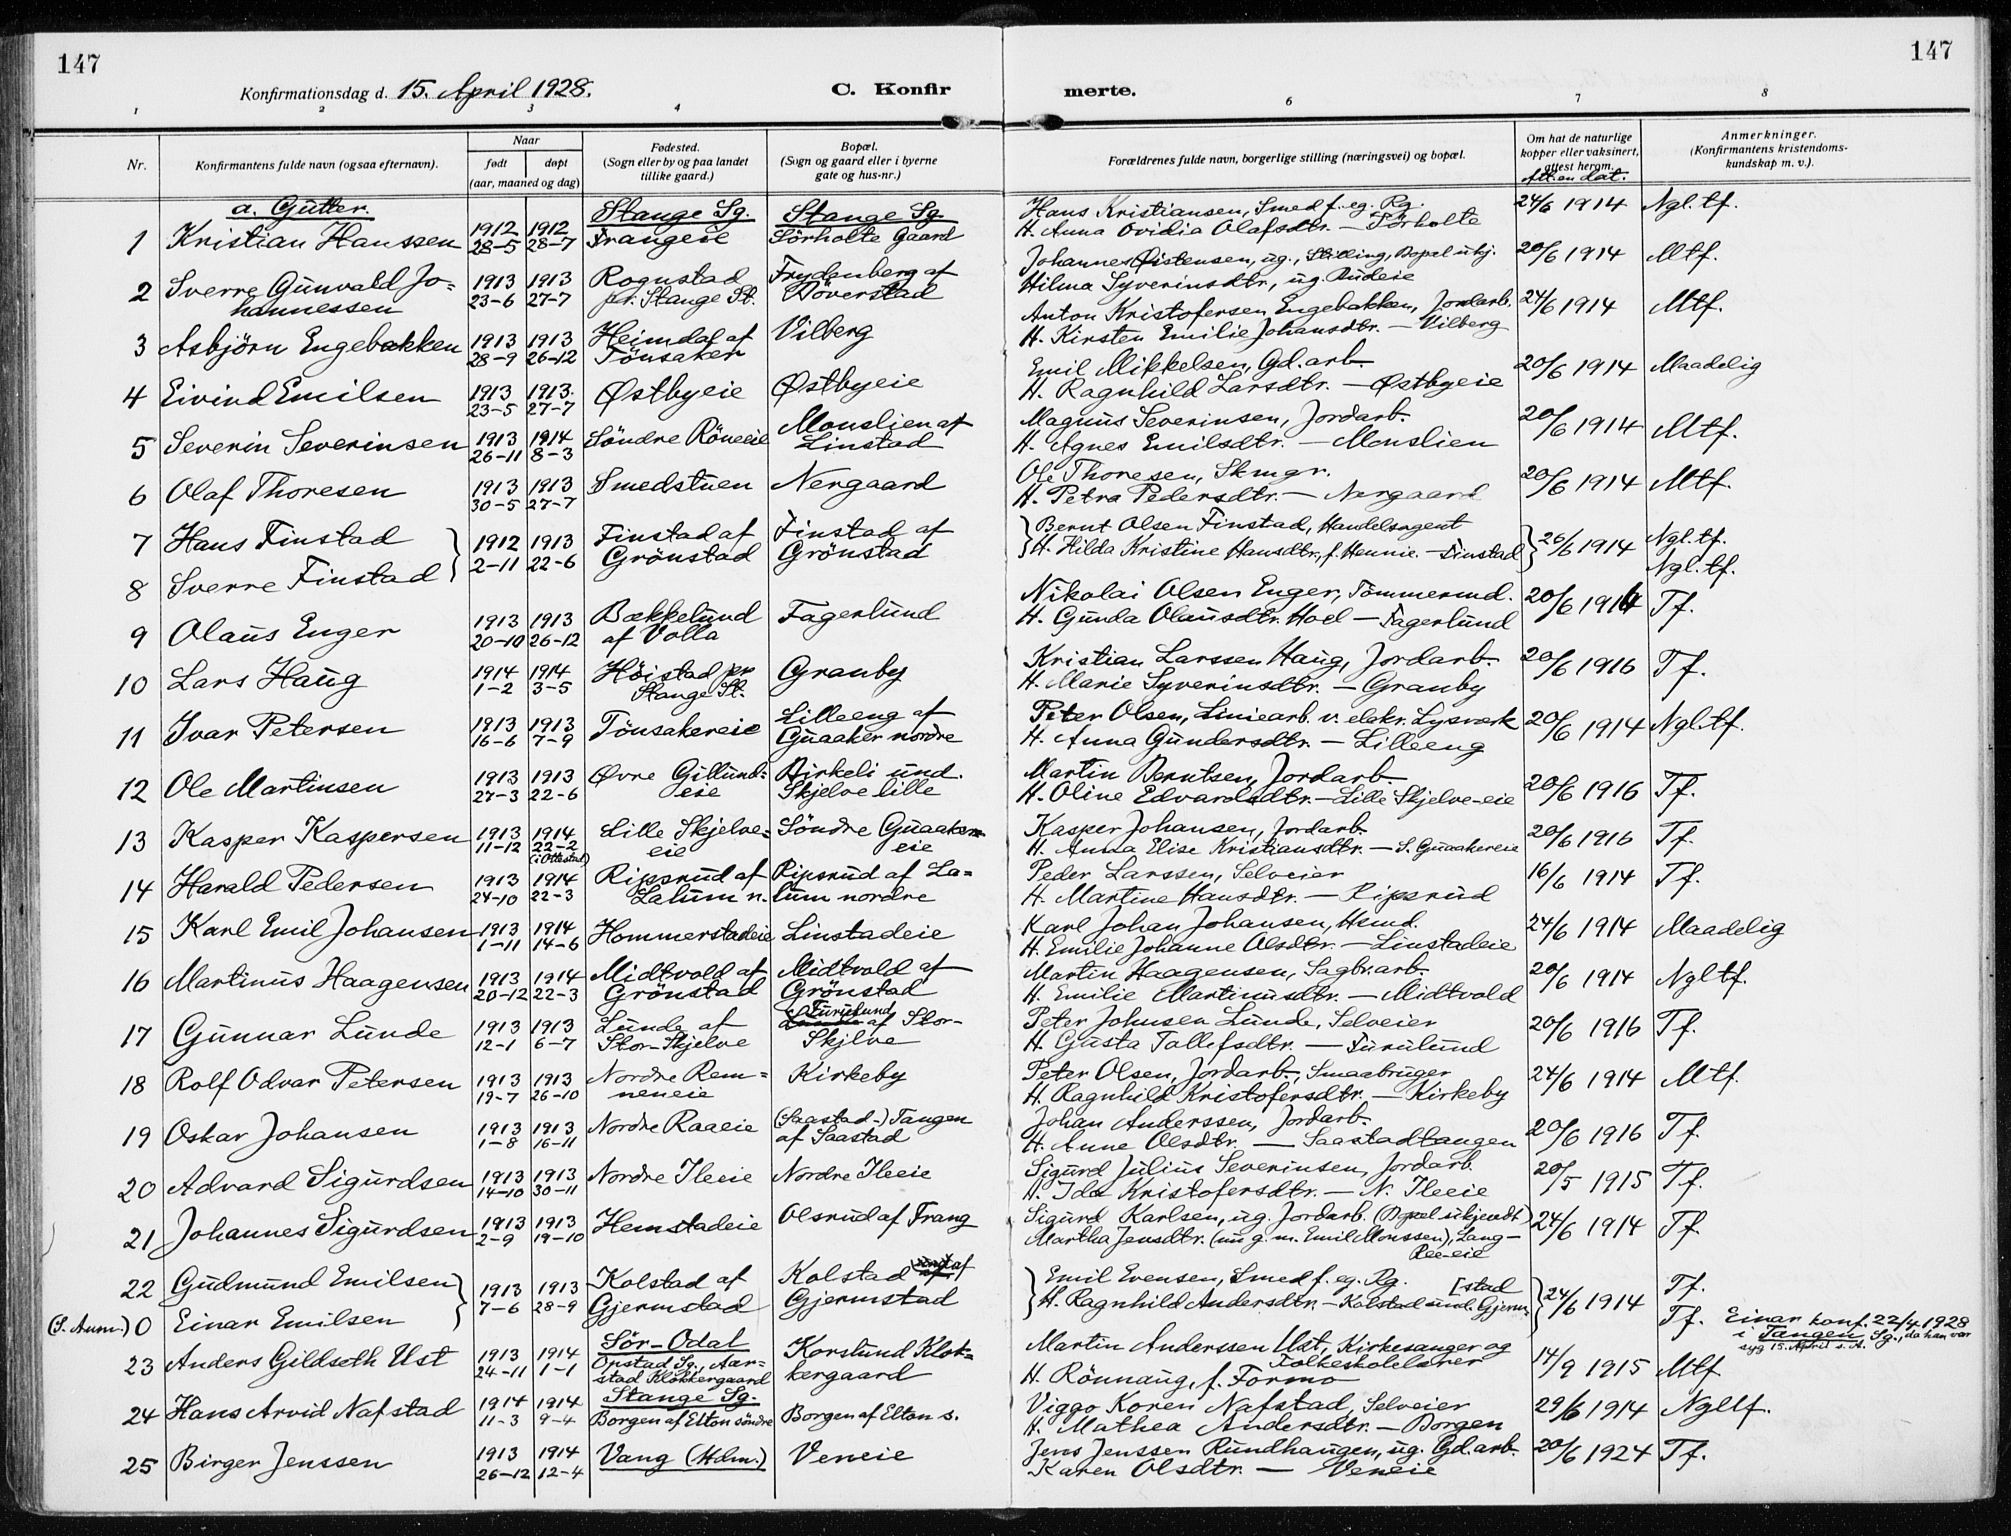 147
147
Konfirmationsdag d. 15. April 1928.
C. Konfir merte.
1 2 3 4 6 7 8
Nr.
Konfirmantens fulde navn (ogsaa efternavn).
Naar
født døpt
(aar, maaned og dag)
Fødested.
(Sogn eller by og paa landet
tillike gaard.)
Bopæl.
(Sogn og gaard eller i byerne
gate og hus-nr.)
Forældrenes fulde navn, borgerlige stilling (næringsvei) og bopæl.
Om hat de naturlige
kopper eller vaksinert,
attest herom.
Att. en dat.
Anmerkninger.
(Konfirmantens kristendoms-
kundskap m. v.).
a. Gutter. Stange Sg. Stange Sg.
1 Kristian Hanssen 1912 28-5 1912 28-7 Frangeie Sörholte Gaard
Hans Kristiansen, Smed f. eg. Rg. 24/6 1914 Ngl. tf.
H. Anna Ovidia Olafsdtr. — Sörholte
2 Sverre Gunvald Jo=
hannessen 1913 23-6 1913 27-7 Rognstad pr. Stange St. Frydenberg af Röverstad
Johannes Øistensen, ug., Stilling, Bopel ukj. 20/6 1914 Mtf.
Hilma Syverinsdtr, ug. Rudeie
3 Asbjörn Engebakken 1913 28-9 1913 26-12 Heimdal af Tönsaker Vilberg
Anton Kristofersen Engebakken, Jordarb. 24/6 1914 Mtf.
H. Kirsten Emilie Johansdtr. — Vilberg
4 Eivind Emilsen 1913 23-5 1913. 27-7 Østbyeie Østbyeie
Emil Mikkelsen, Gd. arb. 20/6 1914 Maadelig
H. Ragnhild Larsdtr. — Østbyeie
5 Severin Severinsen 1913 26-11 1914 8-3 Söndre Röneeie Monslien af Linstad
Magnus Severinsen, Jordarb. 20/6 1914 Mtf.
H. Agnes Emilsdtr. — Monslien
6 Olaf Thoresen 1913 30-5 1913 27-7 Smedstuen Nergaard
Ole Thoresen, Skmgr. 20/6 1914 Mtf.
H. Petra Pedersdtr. — Nergaard
7 Hans Finstad 1912 2-11 1913 22-6 Finstad af Grönstad Finstad af Grönstad
Bernt Olsen Finstad, Handelsagent 26/6 1914 Ngl. tf.
H. Hilda Kristine Hansdtr., f. Hennie. — Finstad
8 Sverre Finstad Ngl. tf.
9 Olaus Enger 1913 20-10 1913 26-12 Bækkelund af Volla Fagerlund
Nikolai Olsen Enger, Tömmermd. 20/6 1914 Tf.
H. Gunda Olausdtr. Hoel — Fagerlund
10 Lars Haug 1914 1-2 1914 3-5 Höistad pr Stange St. Granby
Kristian Larssen Haug, Jordarb. 20/6 1916 Tf.
H. Marie Syverinsdtr. — Granby
11 Ivar Petersen 1913 16-6 1913 7-9 Tönsakereie Lilleeng af Guaaker nordre
Peter Olsen, Liniearb. v. elekr. Lysverk 20/6 1914 Ngl. tf.
H. Anna Gundersdtr. — Lilleeng
12 Ole Martinsen 1913 27-3 1913 22-6 Øvre Gillund=eie Birkeli und. Skjelve lille
Martin Berntsen, Jordarb. 20/6 1916 Tf.
H. Oline Edvardsdtr. — Lille Skjelve-eie
13 Kasper Kaspersen 1913 11-12 1914 22-2 (i Ottestad) Lille Skjelve=eie Söndre Guaaker=eie
Kasper Johansen, Jordarb. 20/6 1916 Tf.
H. Anna Elise Kristiansdtr. — S. Guaakereie
14 Harald Pedersen 1913 24-10 1914 22-3 Ripsrud af Lalum n. Ripsrud af La=lum nordre
Peder Larssen, Selveier 16/6 1914 Tf.
H. Martine Hansdtr. — Ripsrud
15 Karl Emil Johansen 1913 1-11 1914 14-6 Hommerstadeie Linstadeie
Karl Johan Johansen, Hsmd. 24/6 1914 Maadelig
H. Emilie Johanne Olsdtr. — Linstadeie
16 Martinus Haagensen 1913 20-12 1914 22-3 Midtvold af Grönstad Midtvold af Grönstad
Martin Haagensen, Sagbr. arb. 20/6 1914 Ngl tf.
H. Emilie Martinusdtr. — Midtvold
17 Gunnar Lunde 1913 12-1 1913 6-7 Lunde af Stor-Skjelve Furulund af Stor-Skjlve
Peter Johnsen Lunde, Selveier 20/6 1916 Tf.
H. Gusta Tollefsdtr. — Furulund
18 Rolf Odvar Petersen 1913 19-7 1913 26-10 Nordre Rem=neneie Kirkeby
Peter Olsen, Jordarb., Smaabruger 24/6 1914 Mtf.
H. Ragnhild Kristofersdtr. — Kirkeby
19 Oskar Johansen 1913 1-8 1913 16-11 Nordre Raaeie (Saastad-) Tangen af Saastad
Johan Anderssen, Jordarb. 20/6 1916 Tf.
H. Anne Olsdtr. — Saastadtangen
20 Advard Sigurdsen 1913 14-10 1913 30-11 Nordre Ileeie Nordre Ileeie
Sigurd Julius Severinsen, Jordarb. 20/5 1915 Tf.
H. Ida Kristofersdtr. — N. Ileeie
21 Johannes Sigurdsen 1913 2-9 1913 19-10 Hemstadeie Olsrud af Frang
Sigurd Karlsen, ug. Jordarb. (Bopel ukjendt) 24/6 1914 Tf.
Martha Jensdtr. (nu g. m. Emil Monssen), Lang-
Ree-eie
22 Gudmund Emilsen 1913 7-6 1913 28-9 Kolstad af Gjermstad Kolstad af Gjermstad
Emil Evensen, Smed f. eg. Rg. [stad 24/6 1914 Tf.
H. Ragnhild Andersdtr. — Kolstad und. Gjerm=
(S. Anm.) 0 Einar Emilsen Tf. Einar konf. 22/4 1928
i Tangen Sg., da han var
syg 15. April s. A.
23 Anders Gildseth Ust 1913 24-11 1914 1-1 Sör-Odal Opstad Sg., Aar=stad Klokkergaard Korslund Klok=kergaard
Martin Anderssen Ust, Kirkesanger og
Folkeskolelærer 14/9 1915 Mtf
H. Rönnaug, f. Formo
Stange Sg.
24 Hans Arvid Nafstad 1914 11-3 1914 9-4 Borgen af Elton söndre Borgen af Elton s.
Viggo Koren Nafstad, Selveier 29/6 1914 Ngltf.
H. Mathea Andersdtr. — Borgen
25 Birger Jenssen 1913 26-12 1914 12-4 Vang (Hdm.) Veneie
Jens Jenssen Rundhaugen, ug. Gd. arb. 20/6 1924 Tf.
Karen Olsdtr. — Veneie